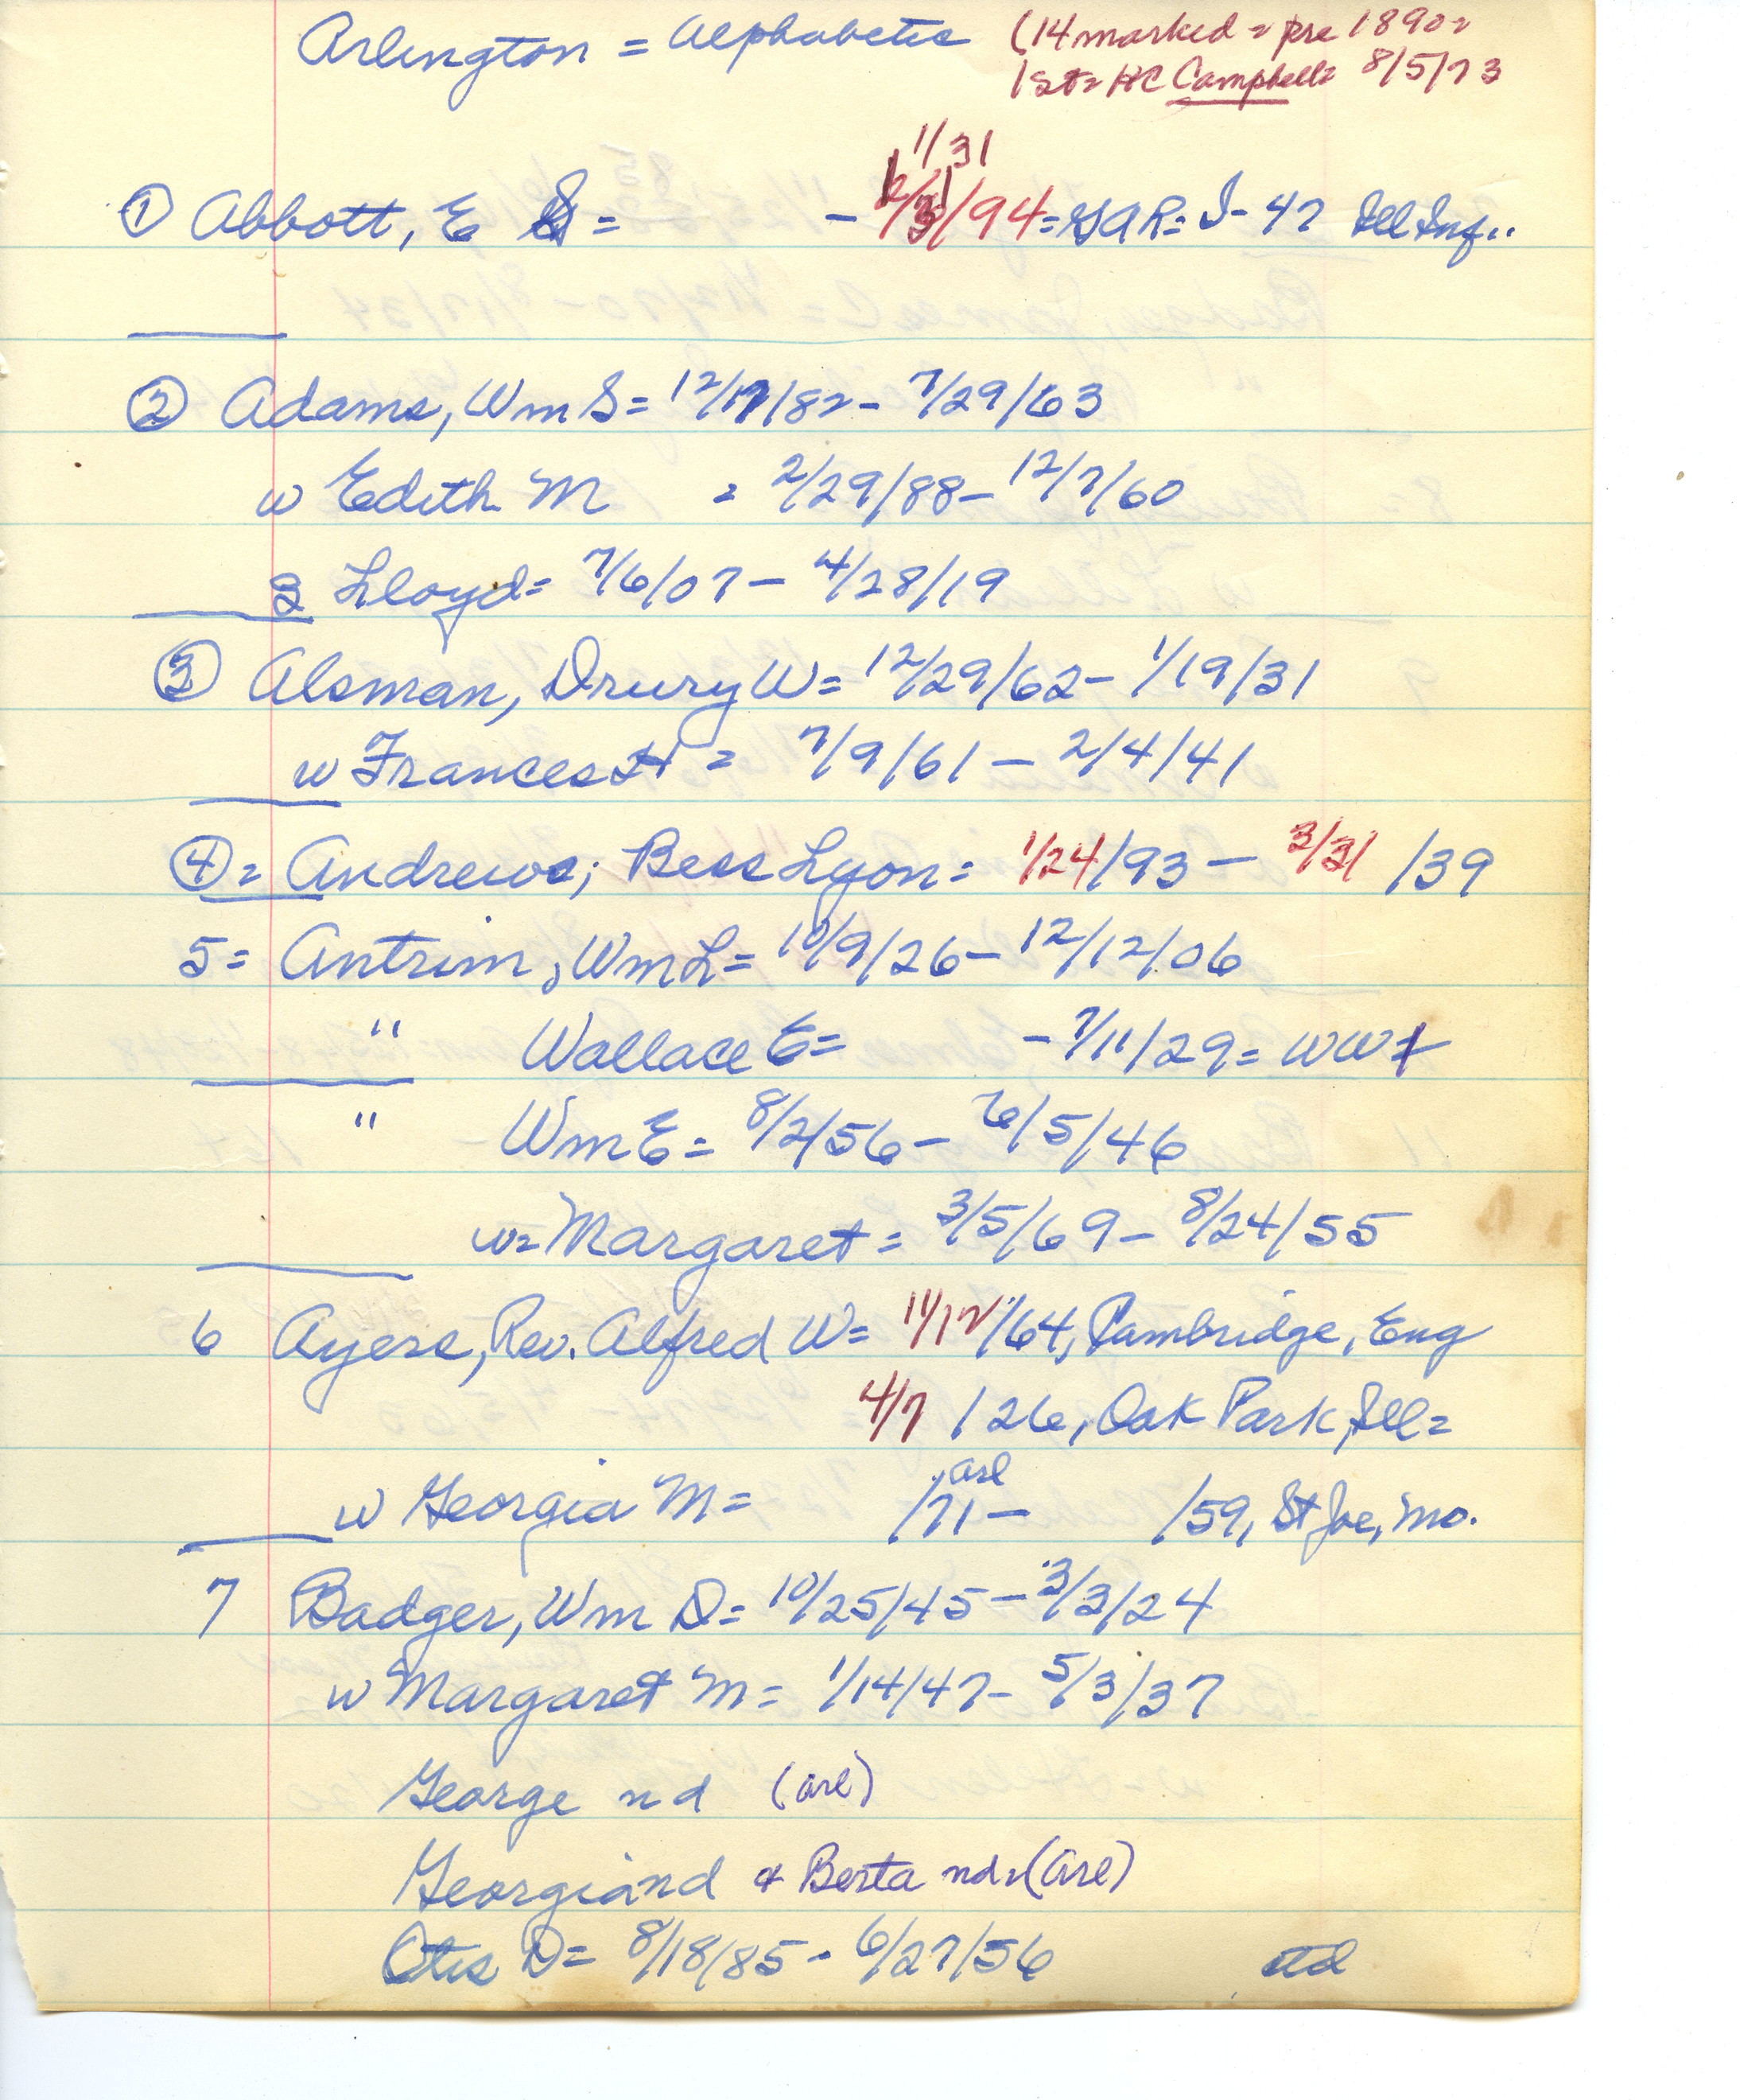 Arlington = Alphabetic (14 marked = pre 1890=
1st= HC Campbell= 8/5/73
1/31
① Abbott, E S = - /94 = GAR = I- 47 Ill Inf..
② Adams, Wm S = 12/17/82 - 7/29/63
w Edith M = 2/29/88 - 12/7/60
S Lloyd = 7/6/07 - 4/28/19
③ Alsman, Drury W = 12/29/62 - 1/19/31
w Frances H = 7/9/61 - 2/4/41
④ = Andrews; Bess Lyon = 1/24/93 - 3/31 /39
5 = Antrim, Wm L = 10/9/26 - 12/12/06
" Wallace E = - 7/11/29 = WW I
" Wm E = 8/2/56 - 6/5/46
w= Margaret = 3/5/69 - 8/24/55
6 Ayers, Rev. Alfred W = 11/12/64, Pambridge, Eng
4/7 /26, Oak Park, Ill =
arl
w Georgia M = /71 - /59, St Joe, Mo.
7 Badger, Wm D = 10/25/45 - 3/3/24
w Margaret M = 1/14/47 - 5/3/37
George nd (arl)
Georgia nd & Berta nd = (arl)
Otis D = 8/18/85 - 6/27/56